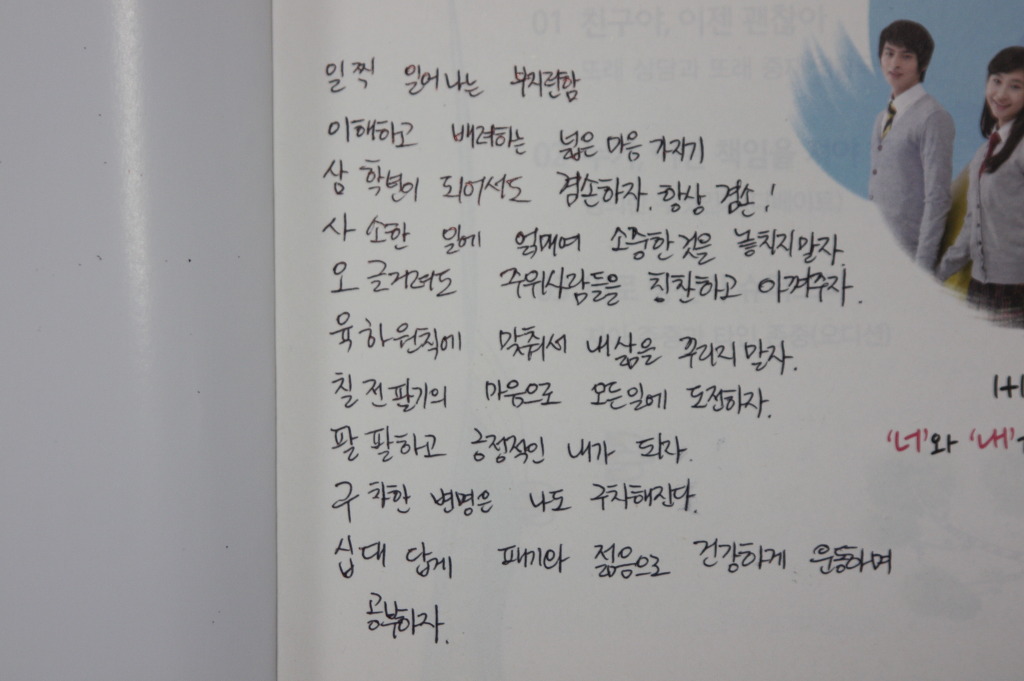 일찍 일어나는 부지런함
이해하고 배려하는 넓은 마음 가지기
삼 학년이 되어서도 겸손하자. 항상 겸손!
사 소한 일에 얽매여 소중한것을 놓치지말자.
오 글거려도 주위사람들을 칭찬하고 아껴주자.
육하원칙에 맞춰서 내삶을 꾸리지말자.
칠전팔기의 마음으로 모든일에 도전하자.
팔 팔하고 긍정적인 내가 되자.
구 차한 변명은 나도 구차해진다.
십대 답게 패기와 젊음으로 건강하게 운동하며
공부하자.
01 친구야, 이젠 괜찮아
또래 상담과 또래
책임을
1+1
'너'와 '내'